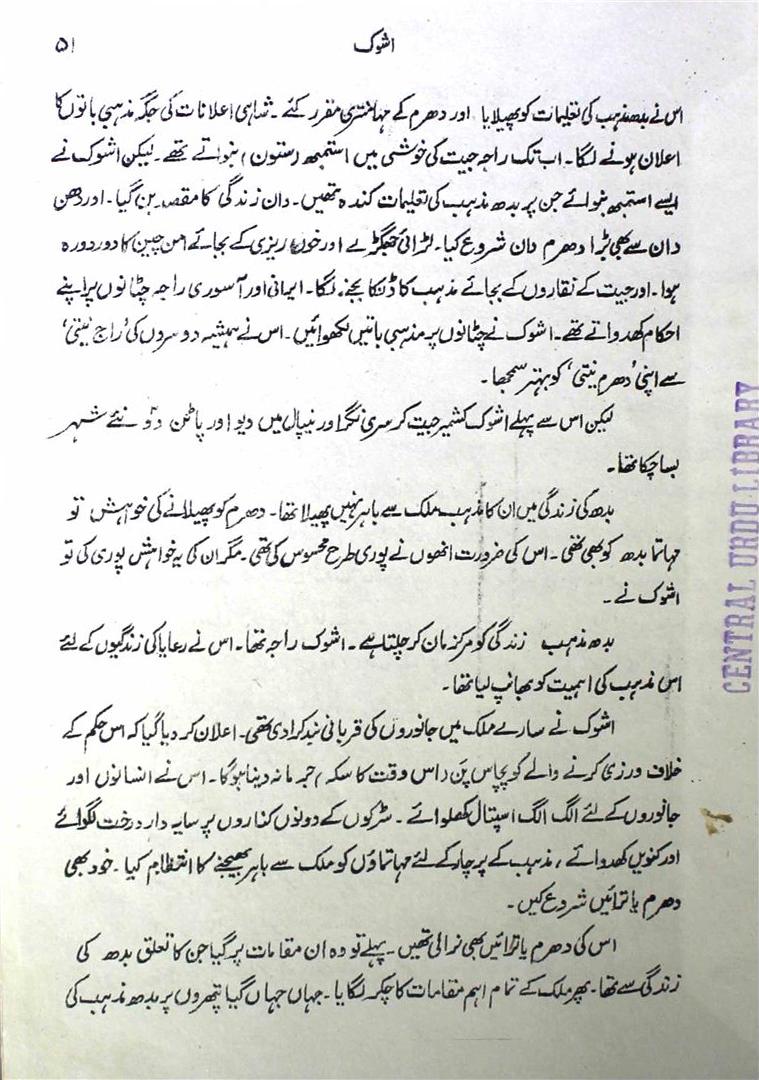 ۵۱
اشوک
اس نے بدھ مذہب کی تعلیمات کو پھیلایا اور دھرم کے مہامنتری مقرر کئے۔ شاہی اعلانات کی جگہ مذہبی باتوں کا
اعلان ہونے لگا۔ اب تک راجہ جیت کی خوشی میں استمبھ (ستون) بنواتے تھے۔ لیکن اشوک نے
ایسے استمبھ بنوائے جن پر بدھ مذہب کی تعلیمات کندہ تھیں۔ دان زندگی کا مقصد بن گیا۔ اور دھن
دان سے بھی بڑا دھرم دان شروع کیا۔ لڑائی جھگڑے اور خوں ریزی کے بجائے امن چین کا دور دورہ
ہوا۔ اور جیت کے نقاروں کے بجائے مذہب کا ڈنکا بجنے لگا۔ ایرانی اور آسوری راجہ چٹانوں پر اپنے
احکام کھدواتے تھے۔ اشوک نے چٹانوں پر مذہبی باتیں لکھوائیں۔ اس نے ہمیشہ دوسروں کی ’راج نیتی‘
سے اپنی ’دھرم نیتی‘ کو بہتر سمجھا۔
لیکن اس سے پہلے اشوک کشمیر جیت کر سری نگر اور نیپال میں دیو اور پاٹن دو نئے شہر
بسا چکا تھا۔
بدھ کی زندگی میں ان کا مذہب ملک سے باہر نہیں پھیلا تھا۔ دھرم کو پھیلانے کی خواہش تو
مہاتما بدھ کو بھی تھی۔ اس کی ضرورت انھوں نے پوری طرح محسوس کی تھی۔ مگر ان کی یہ خواہش پوری کی تو
اشوک نے۔
بدھ مذہب زندگی کو مرکز مان کر چلتا ہے۔ اشوک راجہ تھا۔ اس نے رعایا کی زندگیوں کے لئے
اس مذہب کی اہمیت کو بھانپ لیا تھا۔
اشوک نے سارے ملک میں جانوروں کی قربانی بند کرا دی تھی۔ اعلان کر دیا گیا کہ اس حکم کے
خلاف ورزی کرنے والے کو پچاس پَن (اس وقت کا سکہ) جرمانہ دینا ہوگا۔ اس نے انسانوں اور
جانوروں کے لئے الگ الگ اسپتال کھلوائے۔ سڑکوں کے دونوں کناروں پر سایہ دار درخت لگوائے
اور کنویں کھدوائے، مذہب کے پرچار کے لئے مہاتماؤں کو ملک سے باہر بھیجنے کا انتظام کیا۔ خود بھی
دھرم یاترائیں شروع کیں۔
اس کی دھرم یاترائیں بھی نرالی تھیں۔ پہلے تو وہ ان مقامات پر گیا جن کا تعلق بدھ کی
زندگی سے تھا۔ پھر ملک کے تمام اہم مقامات کا چکر لگایا۔ جہاں جہاں گیا پتھروں پر بدھ مذہب کی
CENTRAL URDU LIBRARY